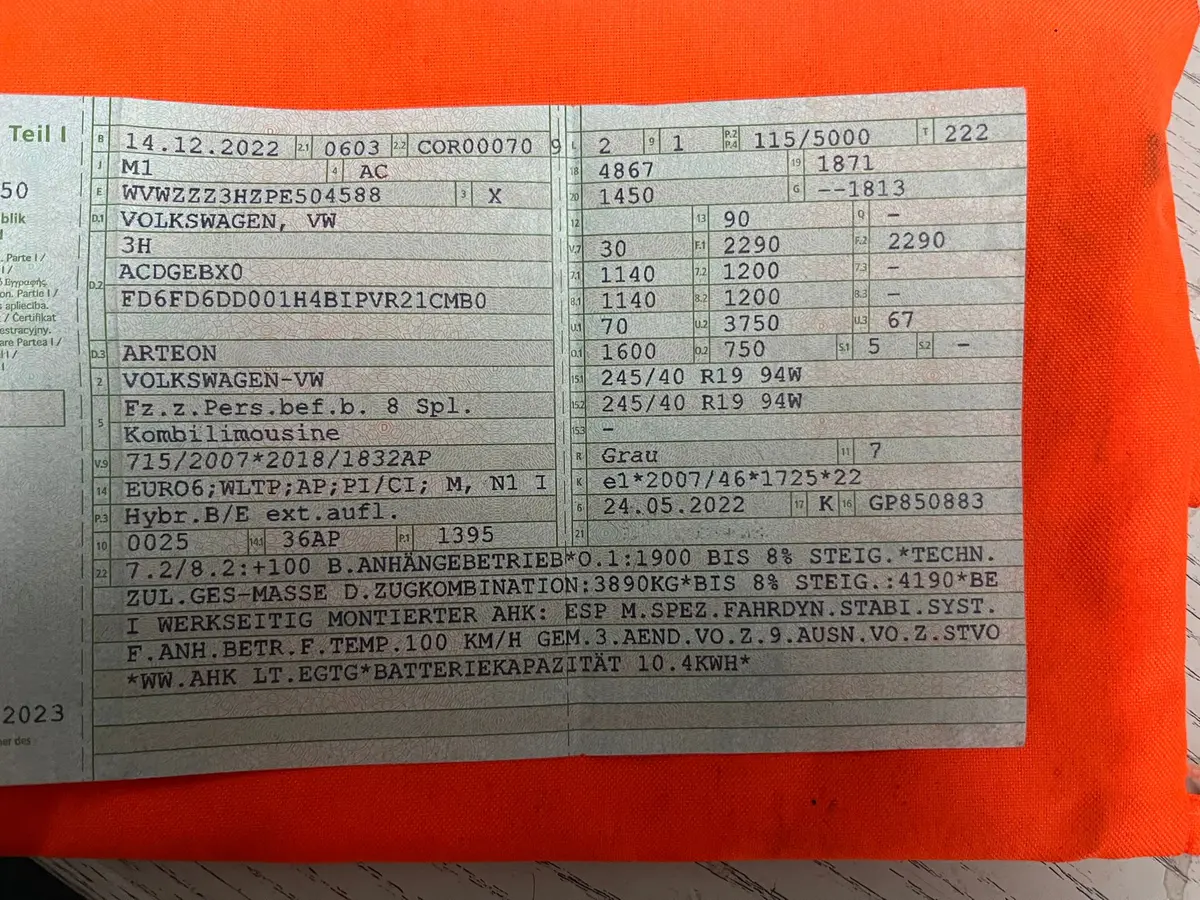 Teil I
50
blik
. Parte I /
I /
ό Εγγραφής
on. Partie I /
s apliecība.
/ Čertifikat
estracyjny.
are Partea I /
l I /
I
2023
er des
B 14.12.2022 2.1 0603 2.2 COR00070 9
J M1 4 AC
E WVWZZZ3HZPE504588 3 X
D.1 VOLKSWAGEN, VW
3H
D.2 ACDGEBX0
FD6FD6DD001H4BIPVR21CMB0
D.3 ARTEON
2 VOLKSWAGEN-VW
5 Fz.z.Pers.bef.b. 8 Spl.
Kombilimousine
V.9 715/2007*2018/1832AP
14 EURO6;WLTP;AP;PI/CI; M, N1 I
P.3 Hybr.B/E ext.aufl.
10 0025 14.1 36AP P.1 1395
L 2 9 1 P.2 P.4 115/5000 T 222
18 4867 19 1871
20 1450 G --1813
12 13 90 Q -
V.7 30 F.1 2290 F.2 2290
7.1 1140 7.2 1200 7.3 -
8.1 1140 8.2 1200 8.3 -
U.1 70 U.2 3750 U.3 67
O.1 1600 O.2 750 S.1 5 S.2 -
15.1 245/40 R19 94W
15.2 245/40 R19 94W
15.3 -
R Grau 11 7
K e1*2007/46*1725*22
6 24.05.2022 17 K 16 GP850883
21
22 7.2/8.2:+100 B.ANHÄNGEBETRIEB*O.1:1900 BIS 8% STEIG.*TECHN.
ZUL.GES-MASSE D.ZUGKOMBINATION:3890KG*BIS 8% STEIG.:4190*BE
I WERKSEITIG MONTIERTER AHK: ESP M.SPEZ.FAHRDYN.STABI.SYST.
F.ANH.BETR.F.TEMP.100 KM/H GEM.3.AEND.VO.Z.9.AUSN.VO.Z.STVO
*WW.AHK LT.EGTG*BATTERIEKAPAZITÄT 10.4KWH*